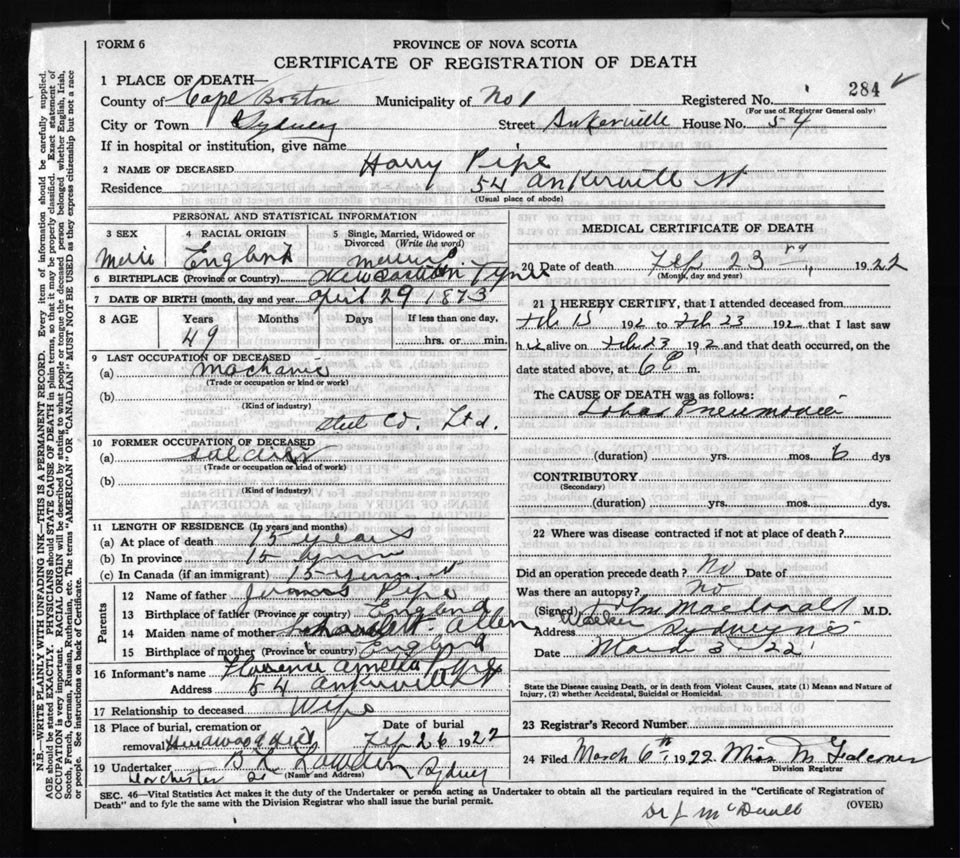 FORM 6
PROVINCE OF NOVA SCOTIA
CERTIFICATE OF REGISTRATION OF DEATH
1 PLACE OF DEATH—
County of Cape Breton Municipality of No 1 Registered No. 284
(For use of Registrar General only)
City or Town Sydney Street Ankerville House No. 54
If in hospital or institution, give name
2 NAME OF DECEASED Harry Pipe
Residence 54 Ankerville St
(Usual place of abode)
N.B.—WRITE PLAINLY WITH UNFADING INK—THIS IS A PERMANENT RECORD. Every item of information should be carefully supplied.
AGE should be stated EXACTLY. PHYSICIANS should STATE CAUSE OF DEATH in plain terms, so that it may be properly classified. Exact statement of
OCCUPATION is very important. RACIAL ORIGIN will be described by stating to what people or tongue the deceased person belonged whether English, Irish,
Scotch, French, German, Russian, Ruthenian, etc. The terms "AMERICAN" OR "CANADIAN" MUST NOT BE USED as they express citizenship but not a race
or people. See instructions on back of Certificate.
PERSONAL AND STATISTICAL INFORMATION
3 SEX 4 RACIAL ORIGIN 5 Single, Married, Widowed or
Divorced (Write the word)
England
6 BIRTHPLACE (Province or Country) Tyne
7 DATE OF BIRTH (month, day and year April 29 1873
8 AGE Years Months Days If less than one day,
49 hrs. or min.
9 LAST OCCUPATION OF DECEASED
(a) Machanic
(Trade or occupation or kind or work)
(b)
(Kind of industry)
Steel Co. Ltd.
10 FORMER OCCUPATION OF DECEASED
(a) Soldier
(Trade or occupation or kind of work)
(b)
(Kind of industry)
11 LENGTH OF RESIDENCE (In years and months)
(a) At place of death 15 years
(b) In province 15
(c) In Canada (if an immigrant) 15
Parents
12 Name of father Pipe
13 Birthplace of father (Province or country) England
14 Maiden name of mother Allen
15 Birthplace of mother (Province or country) England
16 Informant's name Florence Amelia Pipe
Address 54 Ankerville St
17 Relationship to deceased Wife
18 Place of burial, cremation or Date of burial
removal Feb 26 1922
19 Undertaker Sydney
(Name and Address)
Dorchester St
MEDICAL CERTIFICATE OF DEATH
20 Date of death Feb 23rd, 1922
(Month, day and year)
21 I HEREBY CERTIFY, that I attended deceased from
Feb 15, 192 to Feb 23 192 that I last saw
alive on Feb 23 192 and that death occurred, on the
date stated above, at 6 m.
The CAUSE OF DEATH was as follows:
Lobar Pneumonia
(duration) yrs. mos. 6 dys
CONTRIBUTORY
(Secondary)
(duration) yrs. mos. dys.
22 Where was disease contracted if not at place of death?
Did an operation precede death? No Date of
Was there an autopsy? no
(Signed) Macdonald M.D.
Address Sydney NS
Date March 3 22
State the Disease causing Death, or in death from Violent Causes, state (1) Means and Nature of
Injury, (2) whether Accidental, Suicidal or Homicidal.
23 Registrar's Record Number
24 Filed March 6th, 1922 Miss M Falconer
Division Registrar
SEC. 46—Vital Statistics Act makes it the duty of the Undertaker or person acting as Undertaker to obtain all the particulars required in the "Certificate of Registration of
Death" and to fyle the same with the Division Registrar who shall issue the burial permit. (OVER)